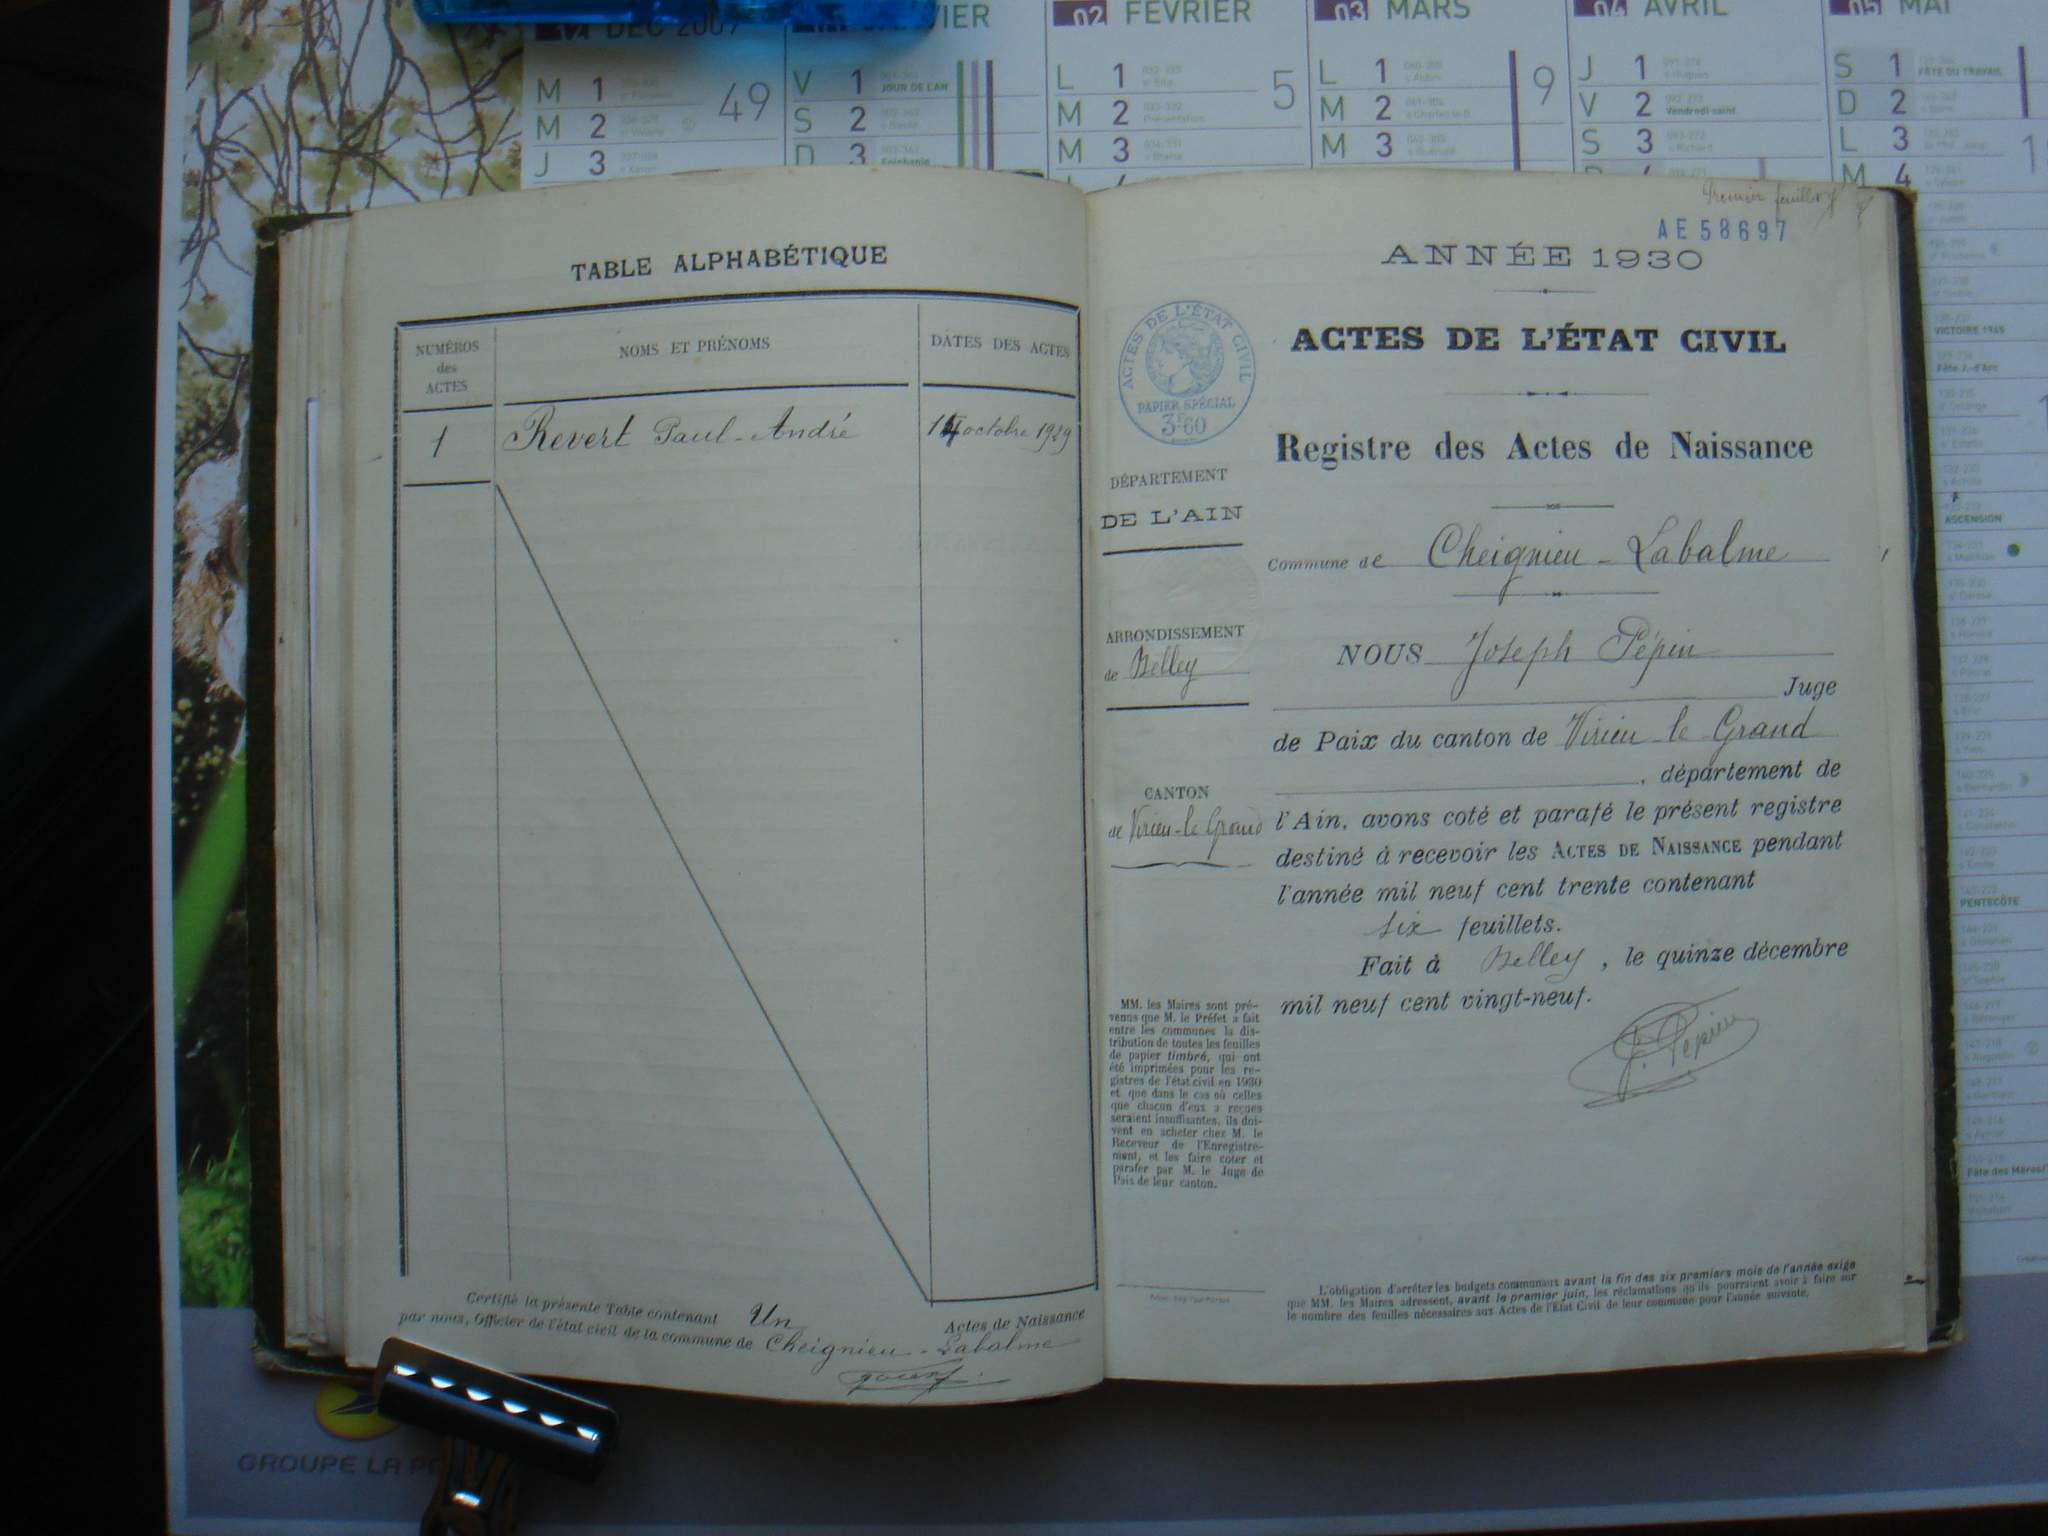 DEC 2009
JANVIER
02 FÉVRIER
03 MARS
04 AVRIL
05 MAI
M 1
M 2
J 3
49
V 1 JOUR DE L'AN
S 2
D 3 Epiphanie
L 1
M 2
M 3
5
L 1
M 2
M 3
9
J 1
V 2 Vendredi saint
S 3
S 1 FÊTE DU TRAVAIL
D 2
L 3
M 4
VICTOIRE 1945
Fête J.-d'Arc
ASCENSION
PENTECÔTE
Fête des Mères
GROUPE LA PO
TABLE ALPHABÉTIQUE
NUMÉROS
des
ACTES
NOMS ET PRÉNOMS
DATES DES ACTES
1 Revert Paul-André 14 octobre 1929
Certifié la présente Table contenant Un Actes de Naissance
par nous, Officier de l'état civil de la commune de Cheignieu-Labalme
Premier feuillet
AE58697
ANNÉE 1930
ACTES DE L'ÉTAT CIVIL
PAPIER SPÉCIAL
3F60
ACTES DE L'ÉTAT CIVIL
Registre des Actes de Naissance
DÉPARTEMENT
DE L'AIN
Commune de Cheignieu-Labalme
ARRONDISSEMENT
de Belley
NOUS Joseph Pépin
Juge
de Paix du canton de Virieu le Grand
, département de
CANTON
de Virieu-le Grand
l'Ain, avons coté et parafé le présent registre
destiné à recevoir les ACTES DE NAISSANCE pendant
l'année mil neuf cent trente contenant
six feuillets.
Fait à Belley, le quinze décembre
mil neuf cent vingt-neuf.
J. Pépin
MM. les Maires sont pré-
venus que M. le Préfet a fait
entre les communes la dis-
tribution de toutes les feuilles
de papier timbré, qui ont
été imprimées pour les re-
gistres de l'état civil en 1930
et que dans le cas où celles
que chacun d'eux a reçues
seraient insuffisantes, ils doi-
vent en acheter chez M. le
Receveur de l'Enregistre-
ment, et les faire coter et
parafer par M. le Juge de
Paix de leur canton.
L'obligation d'arrêter les budgets communaux avant la fin des six premiers mois de l'année exige
que MM. les Maires adressent, avant le premier juin, les réclamations qu'ils pourraient avoir à faire sur
le nombre des feuilles nécessaires aux Actes de l'État Civil de leur commune pour l'année suivante.